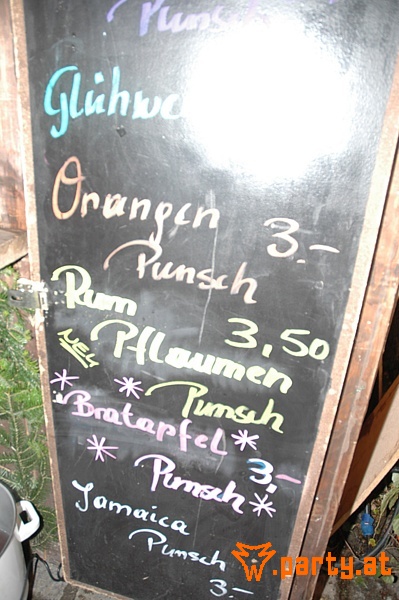 Punsch
Glühw
Orangen 3.-
Punsch
Rum 3,50
NEU Pflaumen
Punsch
Bratapfel
Punsch 3.-
Jamaica
Punsch 3.-
.party.at